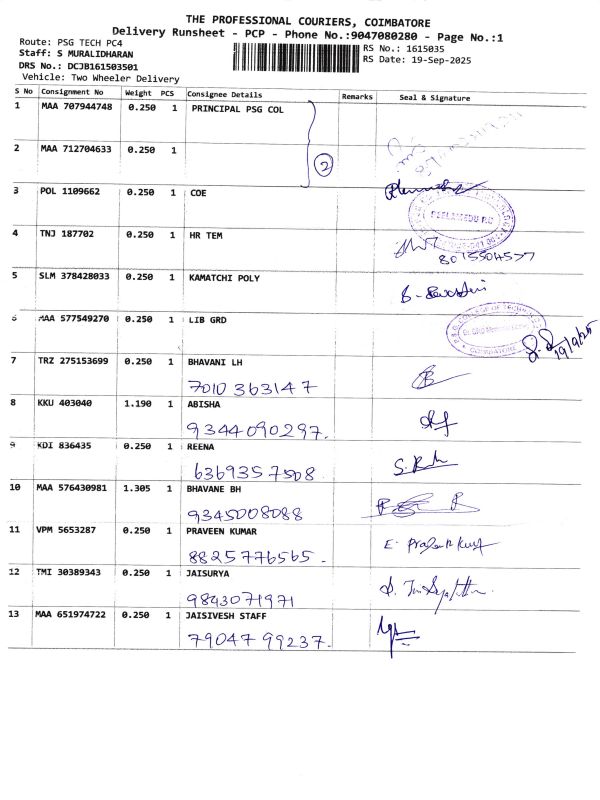 THE PROFESSIONAL COURIERS, COIMBATORE
Delivery Runsheet - PCP - Phone No.:9047080280 - Page No.:1
Route: PSG TECH PC4
Staff: S MURALIDHARAN
DRS No.: DCJB161503501
Vehicle: Two Wheeler Delivery
RS No.: 1615035
RS Date: 19-Sep-2025
S No Consignment No Weight PCS Consignee Details Remarks Seal & Signature
1 MAA 707944748 0.250 1 PRINCIPAL PSG COL
2 MAA 712704633 0.250 1
2
3 POL 1109662 0.250 1 COE
PEELAMEDU P.O
4 TNJ 187702 0.250 1 HR TEM
8015504577
5 SLM 378428033 0.250 1 KAMATCHI POLY
6 MAA 577549270 0.250 1 LIB GRD
19/9/25
7 TRZ 275153699 0.250 1 BHAVANI LH
7010 363147
8 KKU 403040 1.190 1 ABISHA
9344090297.
9 KDI 836435 0.250 1 REENA
6369357508.
10 MAA 576430981 1.305 1 BHAVANE BH
9345008088
11 VPM 5653287 0.250 1 PRAVEEN KUMAR
8825776565.
12 TMI 30389343 0.250 1 JAISURYA
9843071971
13 MAA 651974722 0.250 1 JAISIVESH STAFF
79047 99237.